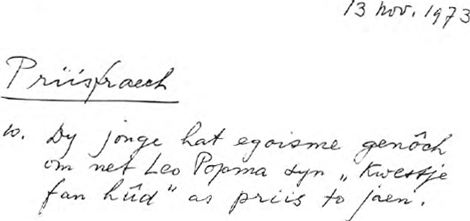 13 nov. 1973
Priisfraech
10. Dy jonge hat egoisme genôch
om net Leo Popma syn „Kwestje
fan hûd" as priis to jaen.